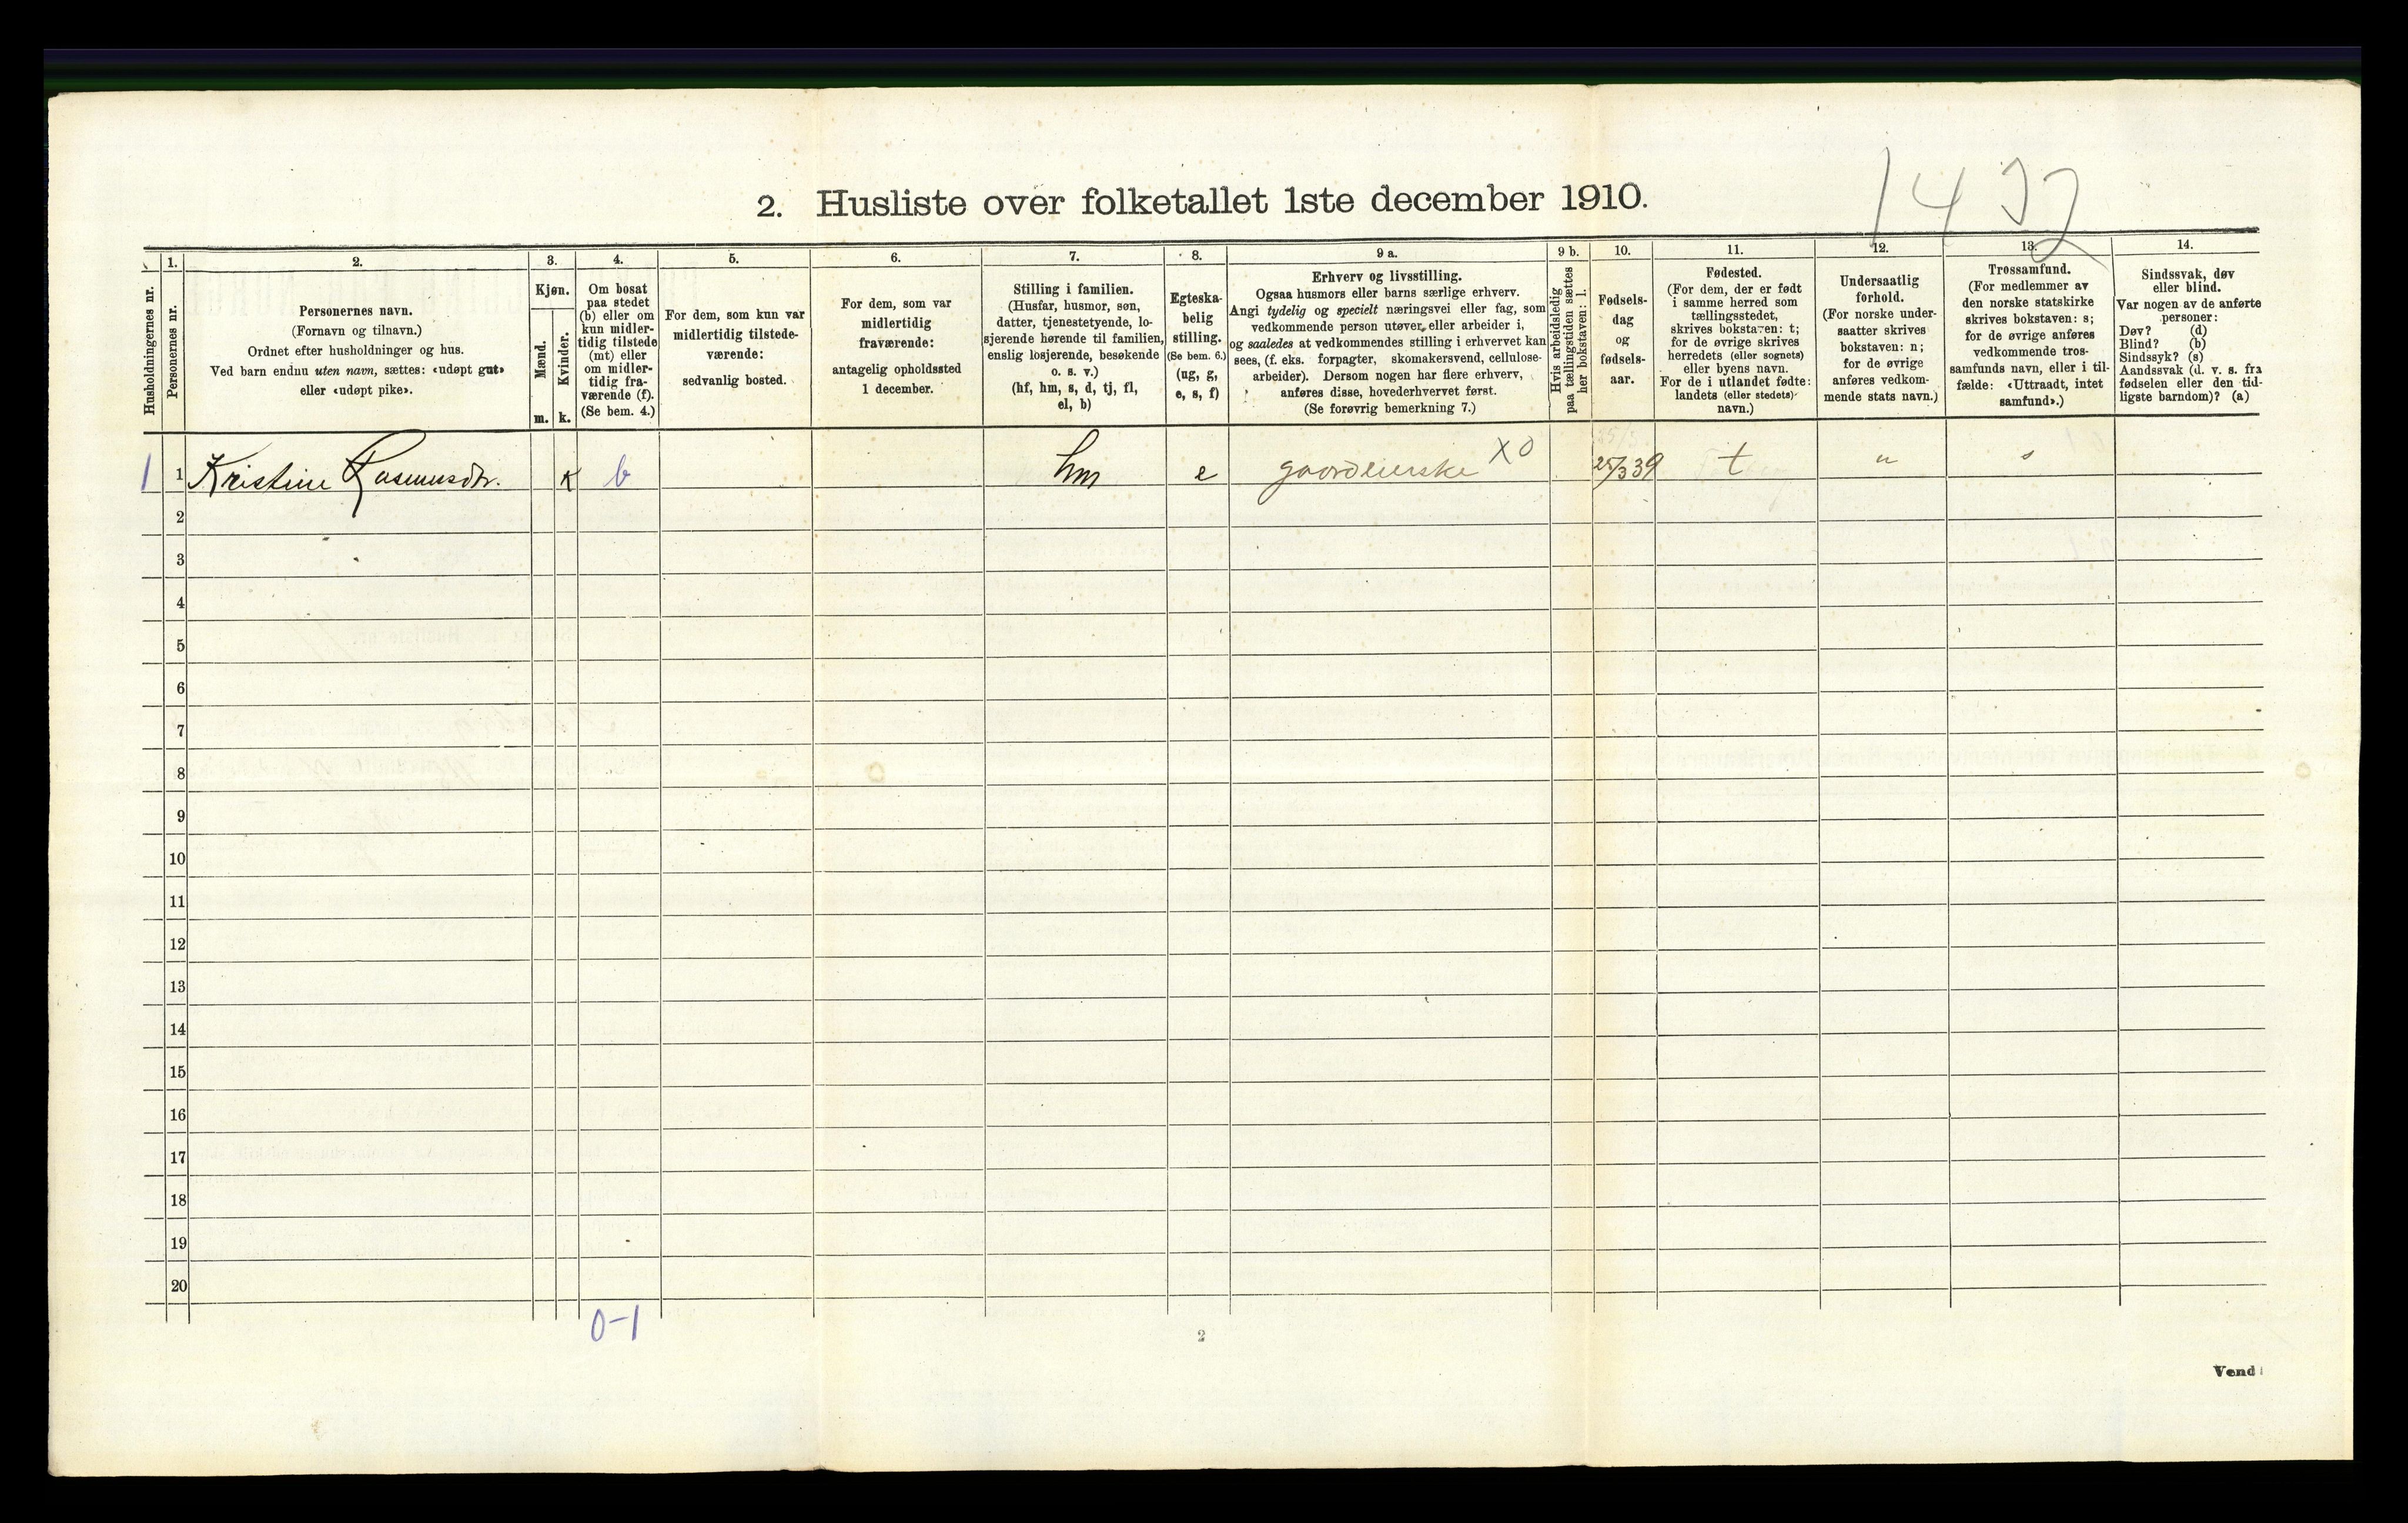 1432
2. Husliste over folketallet 1ste december 1910.
Husholdningernes nr.
1.
Personernes nr.
2.
Personernes navn.
(Fornavn og tilnavn.)
Ordnet efter husholdninger og hus.
Ved barn endnu uten navn, sættes: «udøpt gut»
eller «udøpt pike».
3.
Kjøn.
Mænd.
m.
Kvinder.
k.
4.
Om bosat
paa stedet
(b) eller om
kun midler-
tidig tilstede
(mt) eller
om midler-
tidig fra-
værende (f).
(Se bem. 4.)
5.
For dem, som kun var
midlertidig tilstede-
værende:
sedvanlig bosted.
6.
For dem, som var
midlertidig
fraværende:
antagelig opholdssted
1 december.
7.
Stilling i familien.
(Husfar, husmor, søn,
datter, tjenestetyende, lo-
sjerende hørende til familien,
enslig losjerende, besøkende
o. s. v.)
(hf, hm, s, d, tj, fl,
el, b)
8.
Egteska-
belig
stilling.
(Se bem. 6.)
(ug, g,
e, s, f)
9 a.
Erhverv og livsstilling.
Ogsaa husmors eller barns særlige erhverv.
Angi tydelig og specielt næringsvei eller fag, som
vedkommende person utøver eller arbeider i,
og saaledes at vedkommendes stilling i erhvervet kan
sees, (f. eks. forpagter, skomakersvend, cellulose-
arbeider). Dersom nogen har flere erhverv,
anføres disse, hovederhvervet først.
(Se forøvrig bemerkning 7.)
9 b.
Hvis arbeidsledig
paa tællingstiden sættes
her bokstaven: l.
10.
Fødsels-
dag
og
fødsels-
aar.
11.
Fødested.
(For dem, der er født
i samme herred som
tællingsstedet,
skrives bokstaven: t;
for de øvrige skrives
herredets (eller sognets)
eller byens navn.
For de i utlandet fødte:
landets (eller stedets)
navn.)
12.
Undersaatlig
forhold.
(For norske under-
saatter skrives
bokstaven: n;
for de øvrige
anføres vedkom-
mende stats navn.)
13.
Trossamfund.
(For medlemmer av
den norske statskirke
skrives bokstaven: s;
for de øvrige anføres
vedkommende tros-
samfunds navn, eller i til-
fælde: «Uttraadt, intet
samfund».)
14.
Sindssvak, døv
eller blind.
Var nogen av de anførte
personer:
Døv? (d)
Blind? (b)
Sindssyk? (s)
Aandssvak (d. v. s. fra
fødselen eller den tid-
ligste barndom)? (a)
1 1 Kristine Rasmusdtr. k b hm e gaardeierske X0 25/3 39 t n s
2
3
4
5
6
7
8
9
10
11
12
13
14
15
16
17
18
19
20
0-1
2
Vend